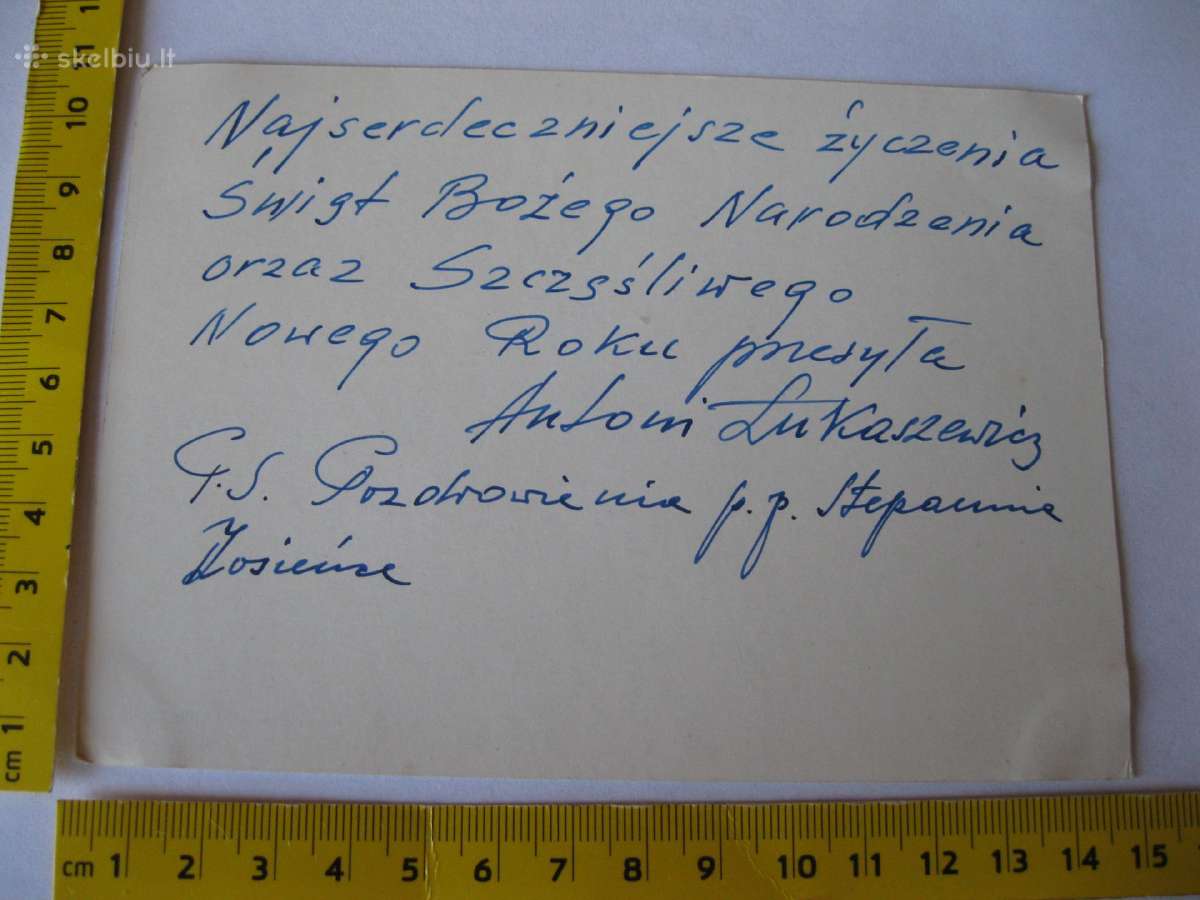 skelbiu.lt
Najserdeczniejsze życzenia
Świąt Bożego Narodzenia
oraz Szczęśliwego
Nowego Roku przesyła
Antoni Łukaszewicz
P.S. Pozdrowienia p.p. Stepannie
cm 1 2 3 4 5 6 7 8 9 10 11
cm 1 2 3 4 5 6 7 8 9 10 11 12 13 14 15